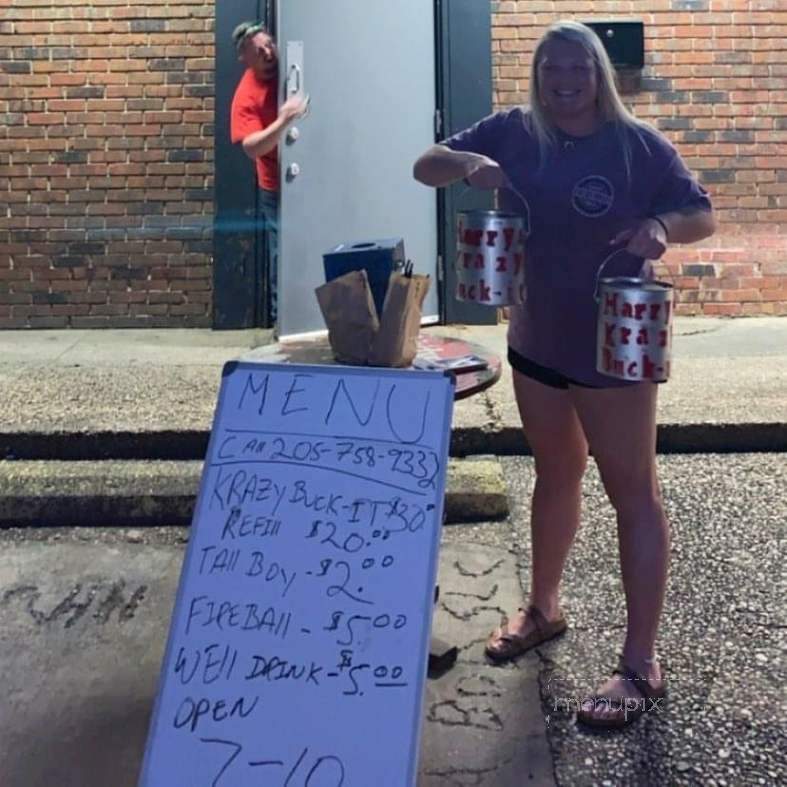 Harry
Krazy
Buck-it
Harry
Kraz
Buck-
MENU
CAll 205-758-9332
KRAZY BUCK-IT $30
REFIll $20.00
TAll BOY - $2.00
FIREBAll - $5.00
WEll DRINK - $5.00
OPEN
7-10
menupix